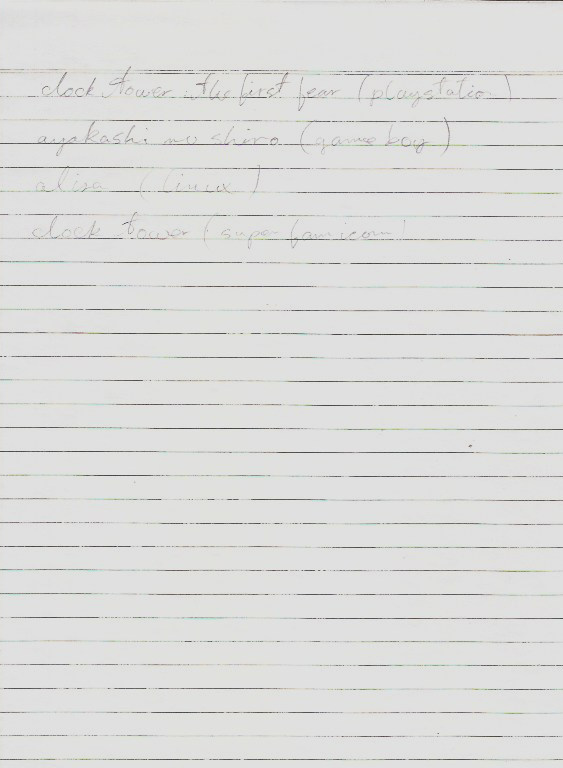 clock tower the first fear (playstation)
ayakashi no shiro (game boy)
alisa (linux)
clock tower (super famicom)